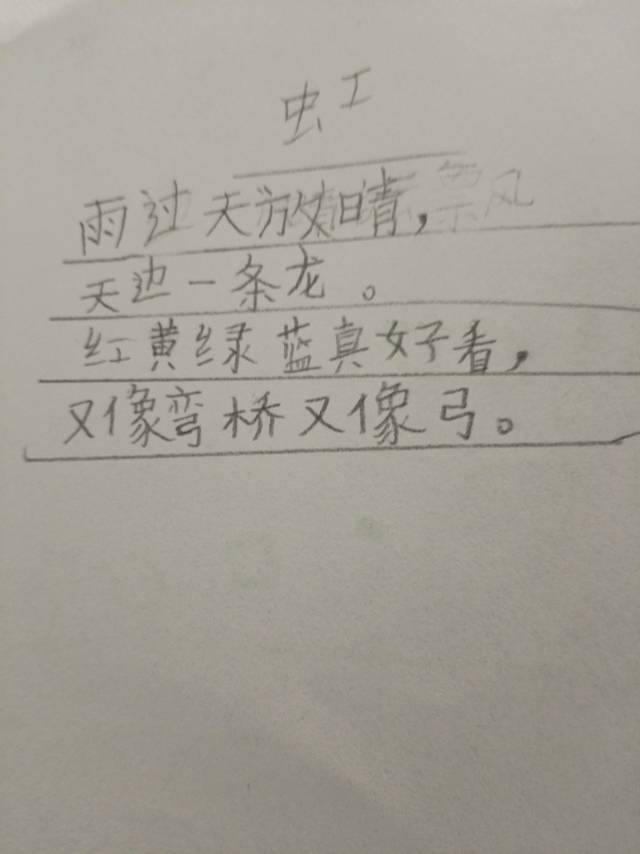 虹
雨过天放晴，
天边一条龙。
红黄绿蓝真好看，
又像弯桥又像弓。